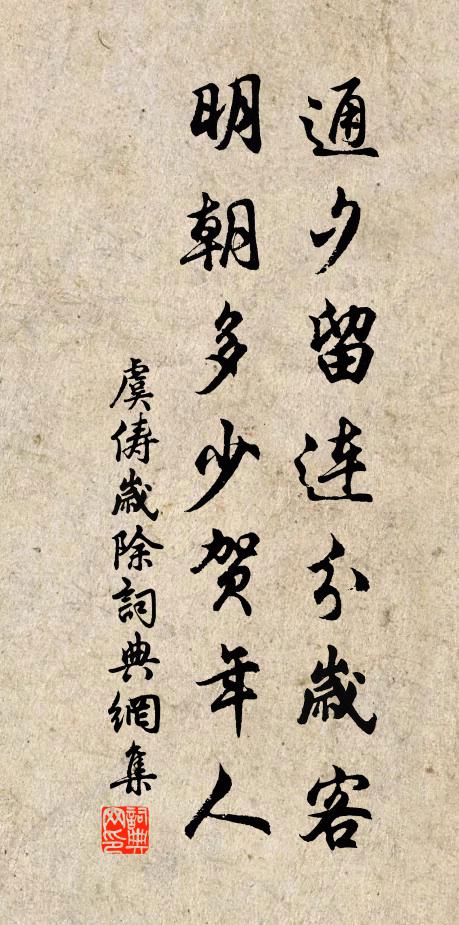 通夕留连分歲客
明朝多少贺年人
虞儔歲除詞典網集
詞典网印